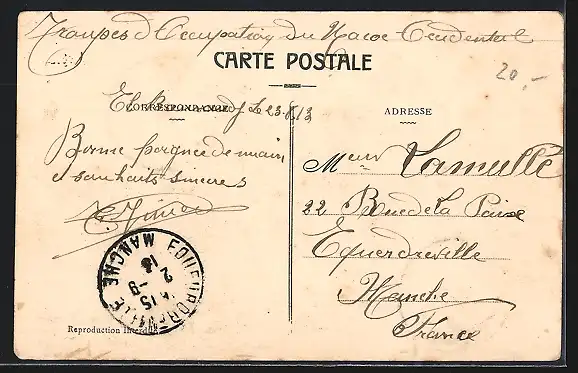 Troupes d'Occupation du Maroc Occidental
CARTE POSTALE
20,-
El le 23.8.13
CORRESPONDANCE
ADRESSE
Bonne poignée de main
e souhaits sincères
Meur Lamullé
22 Rue de La Paix
Equerdreville
Manche
France
EQUEURDREVILLE MANCHE
15
2 - 9
13
Reproduction interdite